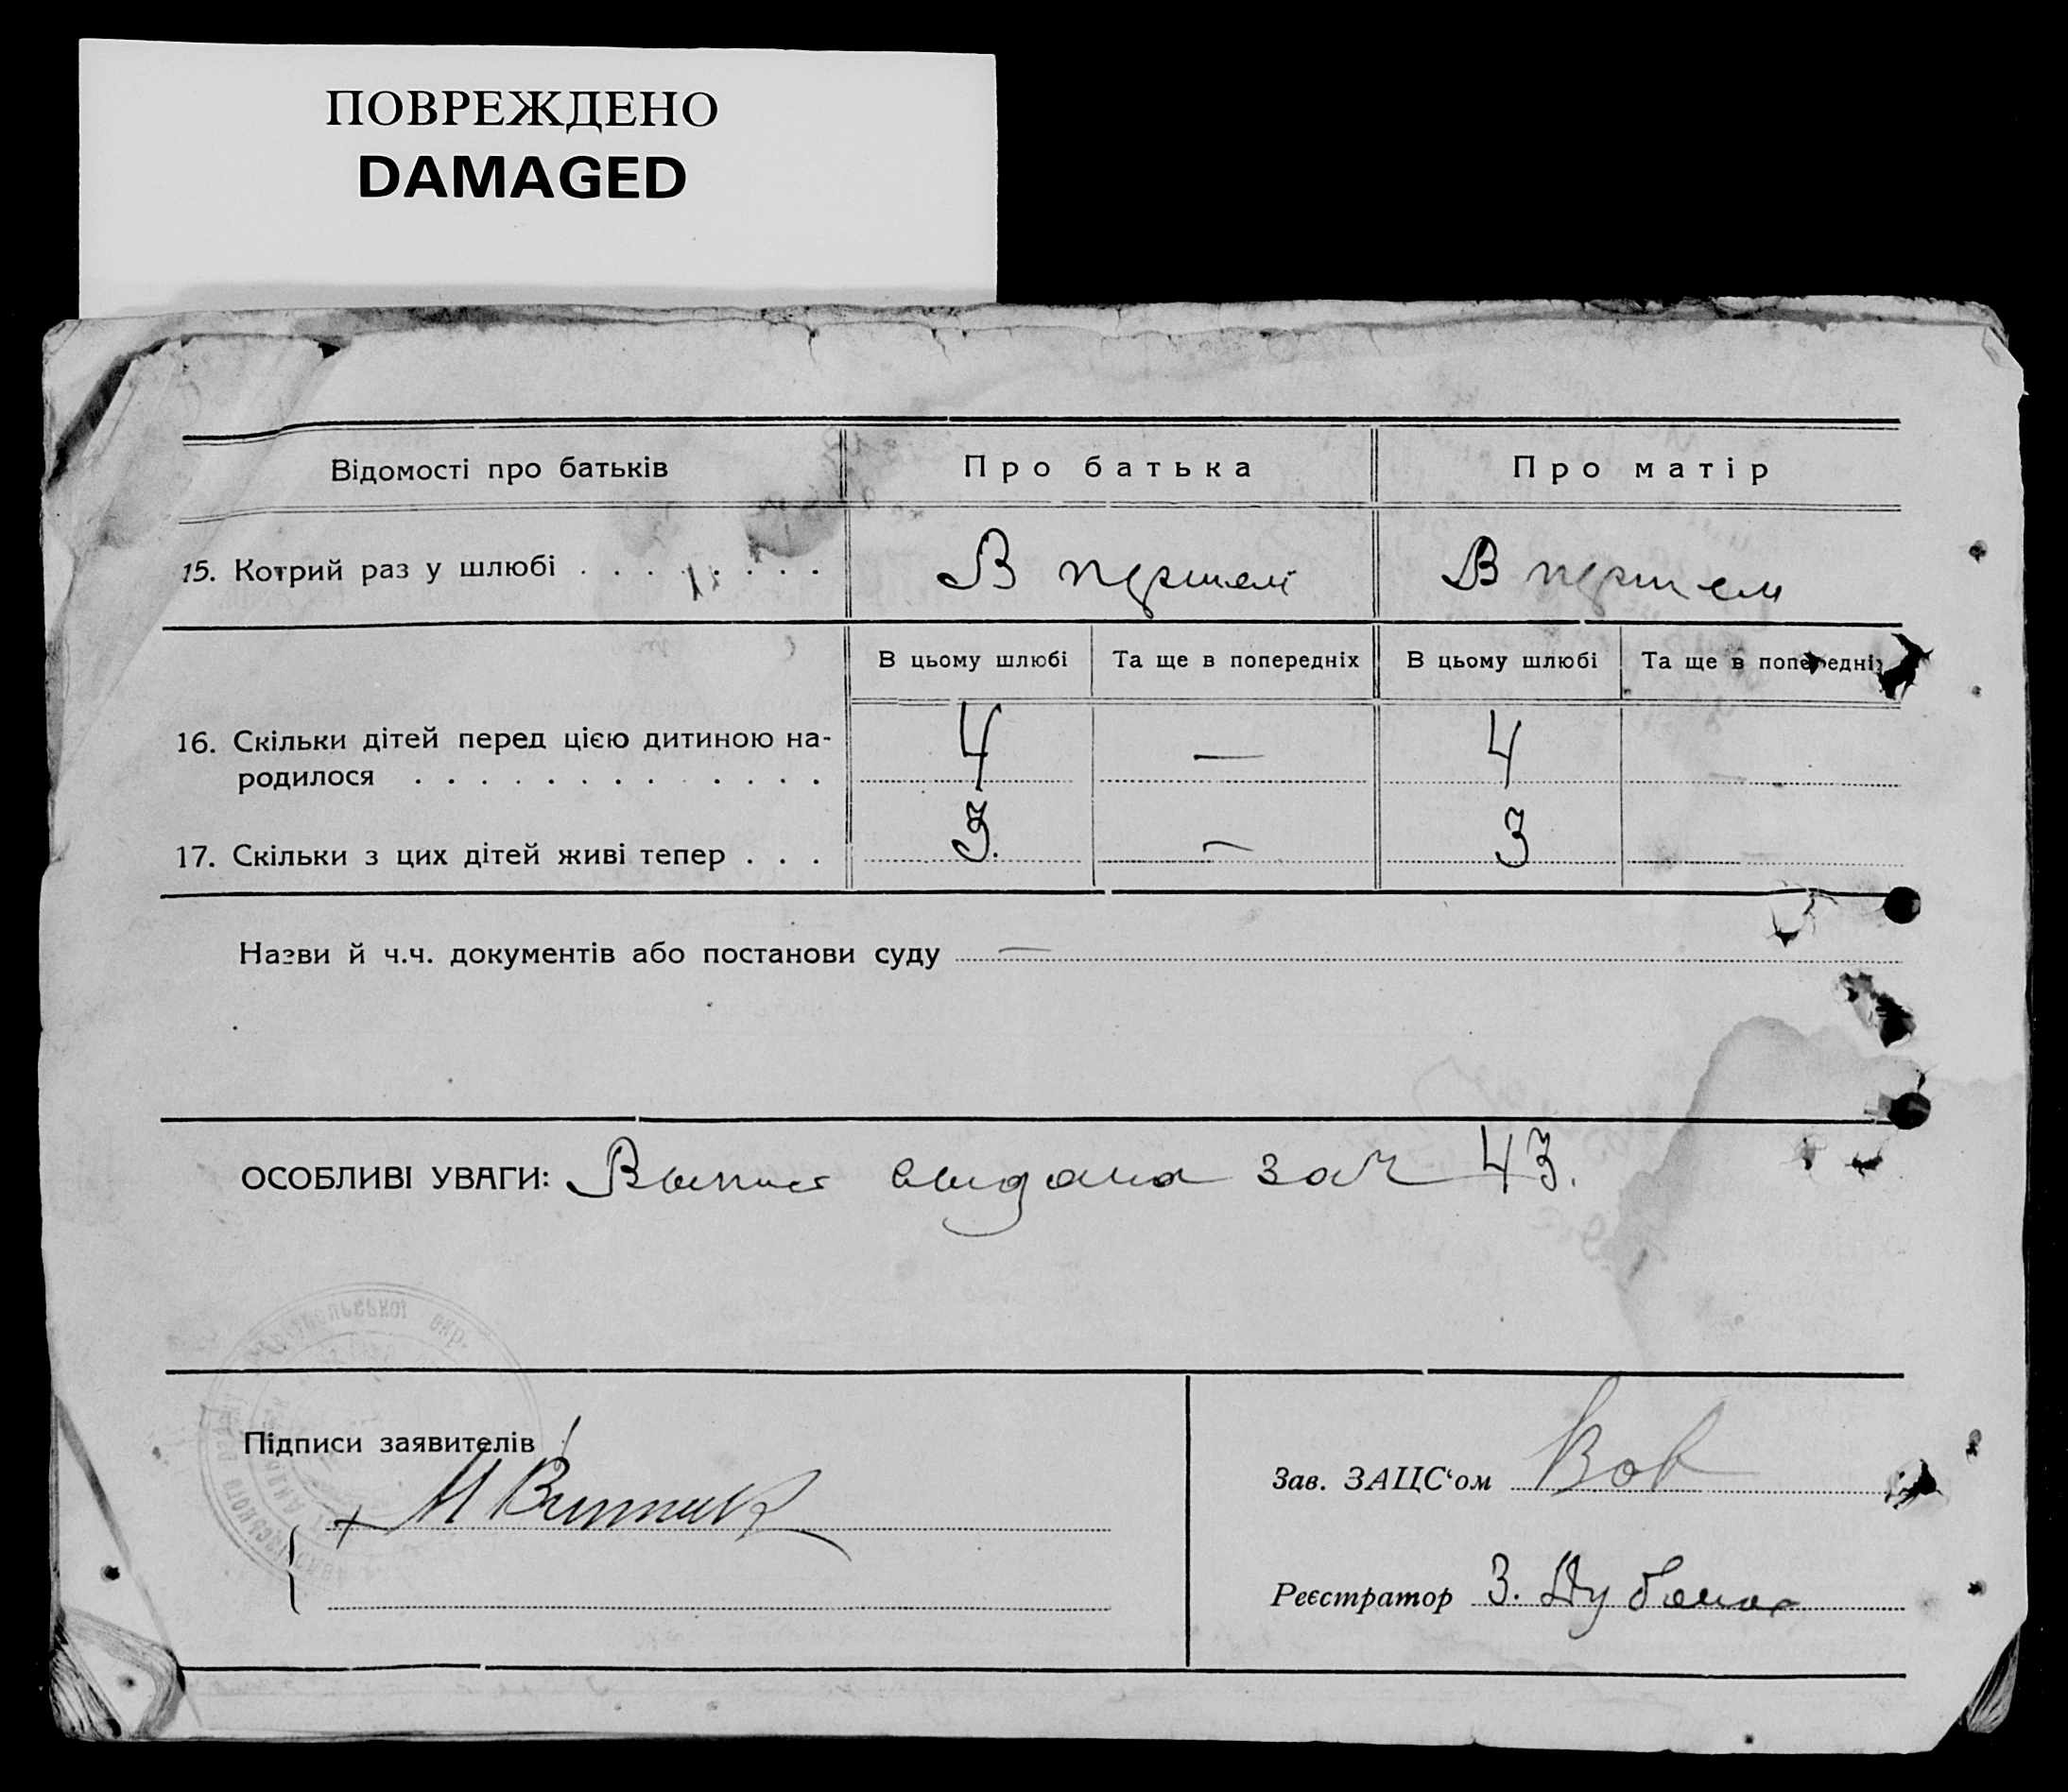 ПОВРЕЖДЕНО
DAMAGED
Відомості про батьків
Про батька
Про матір
15. Котрий раз у шлюбі . . . . . . . .
В першем
В першем
В цьому шлюбі
Та ще в попередніх
В цьому шлюбі
Та ще в попередніх
16. Скільки дітей перед цією дитиною на-
родилося . . . . . . . . . . . . .
4
—
4
—
17. Скільки з цих дітей живі тепер . . .
3.
—
3
—
Назви й ч.ч. документів або постанови суду —
ОСОБЛИВІ УВАГИ: Выпись выдана за № 43.
Підписи заявителів
Зав. ЗАЦС‘ом
+ М
Реєстратор З.